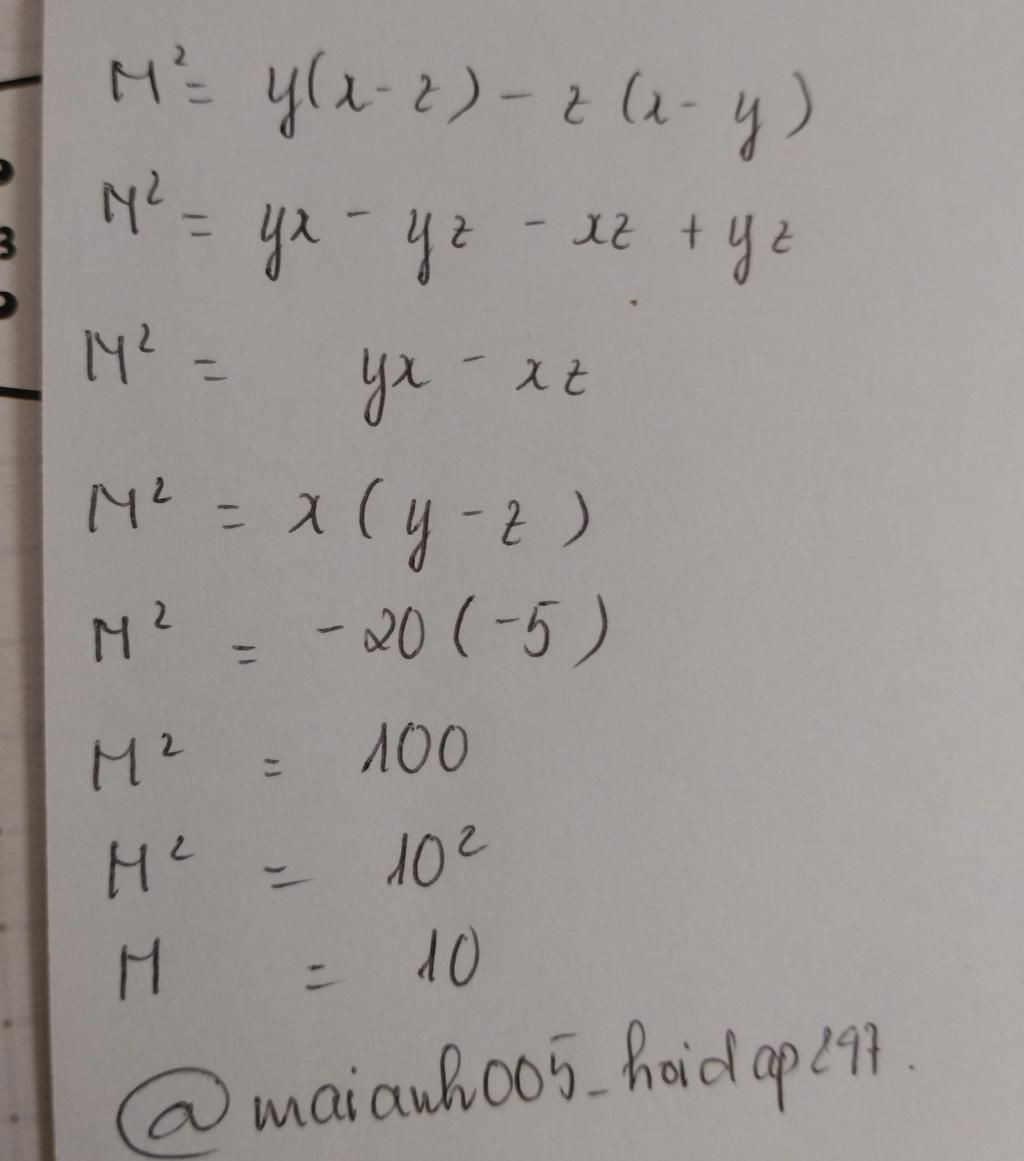 M² = y(x - z) - z (x - y)
M² = yx - yz - xz + yz
M² = yx - xz
M² = x ( y - z )
M² = -20 ( -5 )
M² = 100
M² = 10²
M = 10
@maianh005_hoidap247.
3